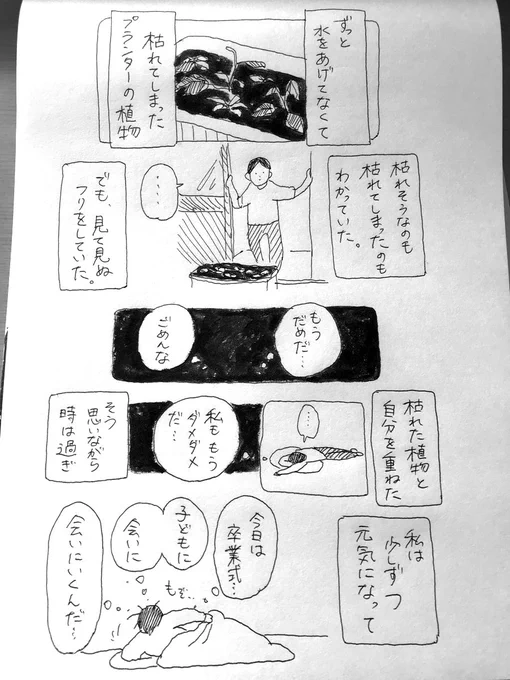 ずっと
水をあげてなくて
枯れてしまった
プランターの植物
枯れそうなのも
枯れてしまったのも
わかっていた。
・・・・
でも、見て見ぬ
フリをしていた。
もう
だめだ…
ごめんな
枯れた植物と
自分を重ねた
…
私ももう
ダメダメ
だ…
そう
思いながら
時は過ぎ
私は
少しずつ
元気になって
今日は
卒業式…
子どもに
会いに
もぞ…
会いにいくんだ…